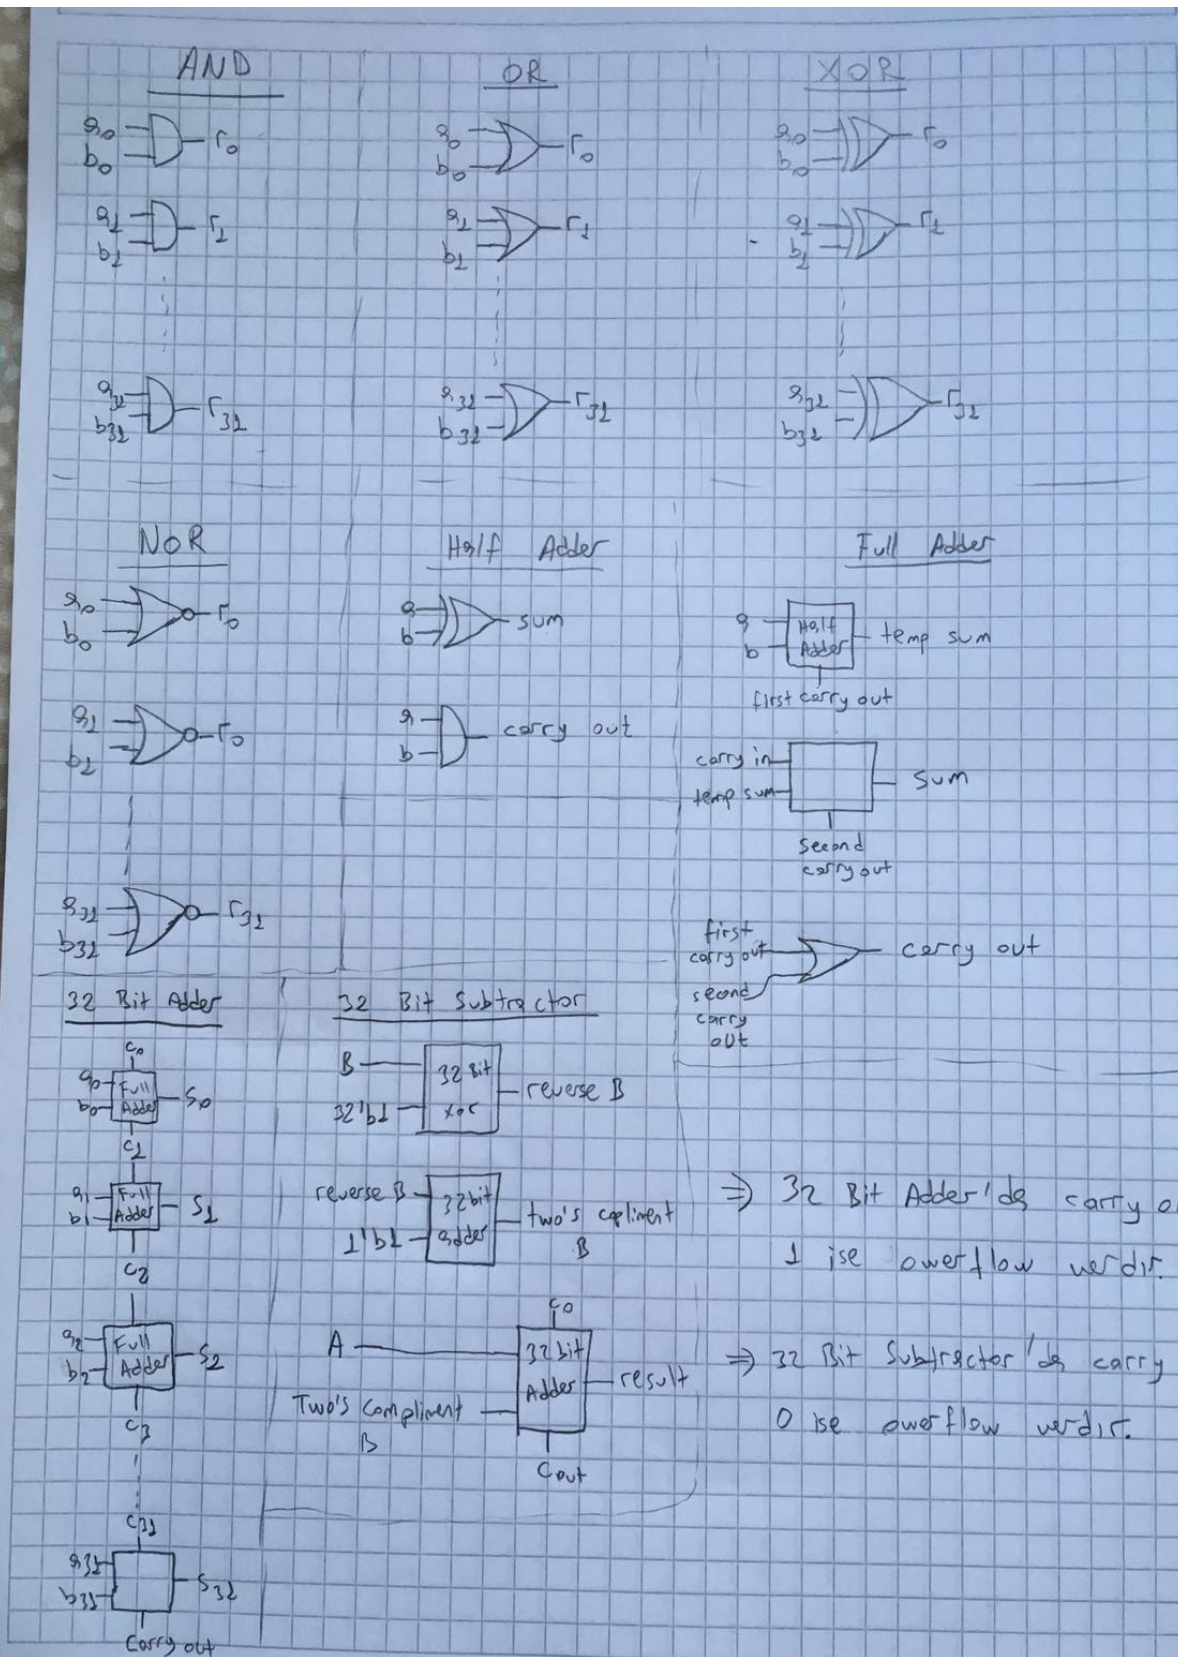 AND
a0
b0
r0
a1
b1
r1
a31
b31
r31
OR
a0
b0
r0
a1
b1
r1
a31
b31
r31
XOR
a0
b0
r0
a1
b1
r1
a31
b31
r31
NOR
a0
b0
r0
a1
b1
r0
a31
b31
r31
Half Adder
a
b
sum
a
b
carry out
Full Adder
a
b
Half
Adder
temp sum
first carry out
carry in
temp sum
sum
second
carry out
first
carry out
second
carry
out
carry out
32 Bit Adder
c0
a0
b0
Full
Adder
S0
c1
a1
b1
Full
Adder
S1
c2
a2
b2
Full
Adder
S2
c3
c31
a31
b31
S31
Carry out
32 Bit Subtractor
B
32'b1
32 Bit
xor
reverse B
reverse B
1'b1
32bit
adder
two's copliment
B
A
Two's compliment
B
c0
32bit
Adder
result
Cout
⇒ 32 Bit Adder'da carry o
1 ise owerflow verdir.
⇒ 32 Bit Subtractor'da carry
0 ise owerflow verdir.